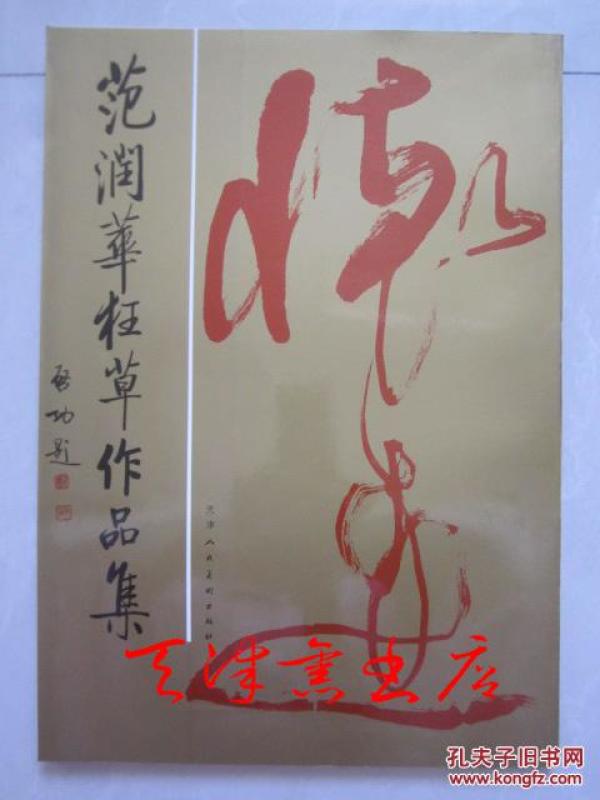 范润華狂草作品集
启功题
天津人民美術出版社
天津舊書店
孔夫子旧书网
www.kongfz.com